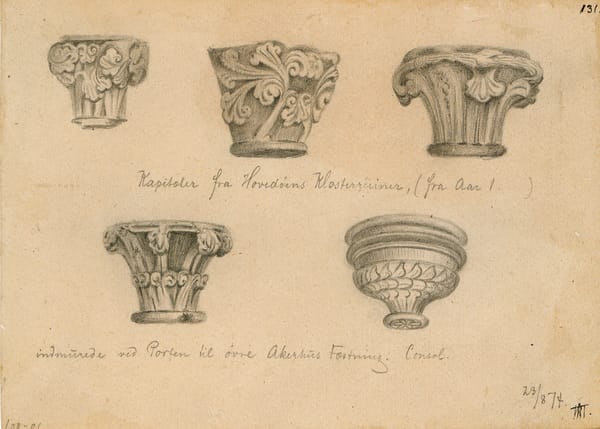 131
Kapitæler fra Hovedøens Klosterruiner, (fra Aar 1 )
indmurede ved Porten til øvre Akerhus Fæstning. Consol.
23/8 74.